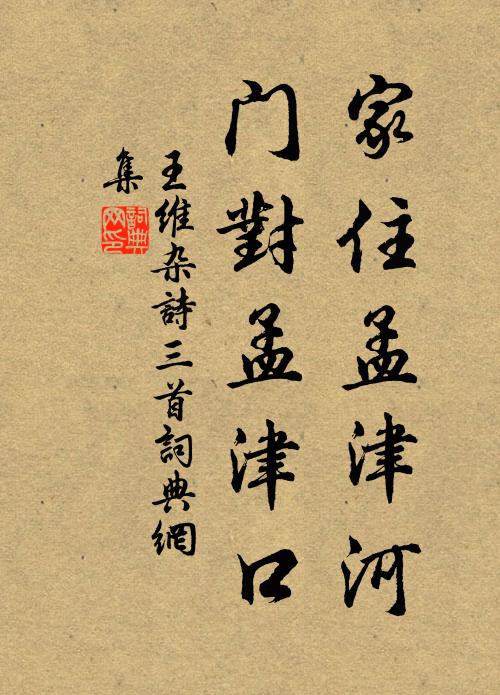 家住孟津河
门對孟津口
王维杂詩三首詞典網
集
詞典
网印